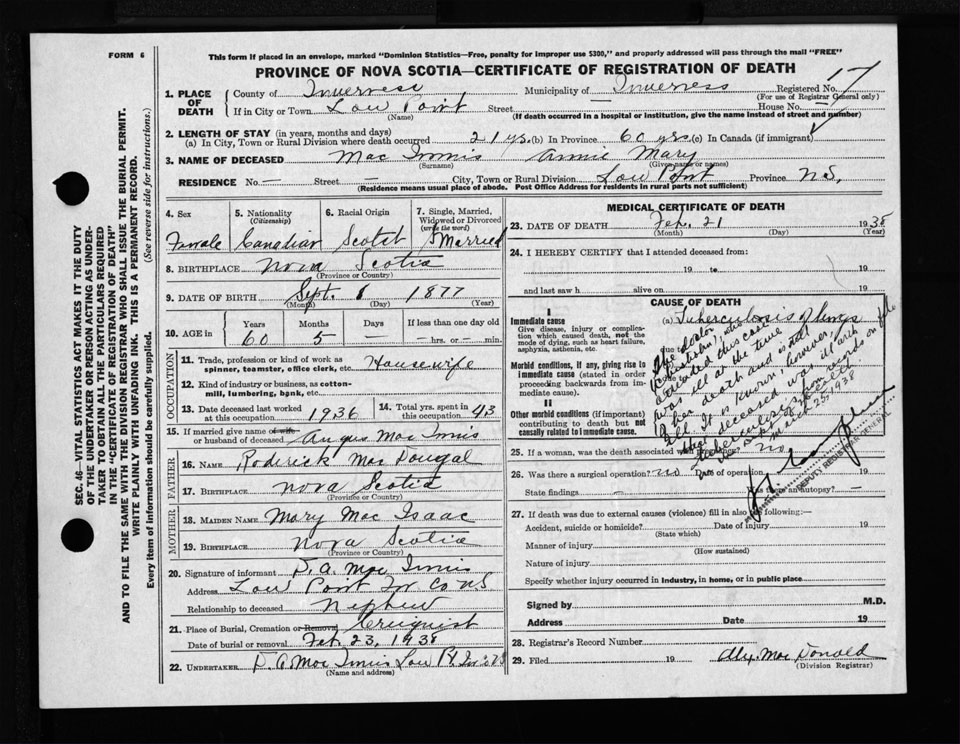 FORM 6
This form if placed in an envelope, marked "Dominion Statistics—Free, penalty for improper use $300," and properly addressed will pass through the mail "FREE"
PROVINCE OF NOVA SCOTIA—CERTIFICATE OF REGISTRATION OF DEATH
1. PLACE OF DEATH County of Inverness Municipality of Inverness Registered No. 17
(For use of Registrar General only)
If in City or Town Low Point Street House No.
(Name) (If death occurred in a hospital or institution, give the name instead of street and number)
2. LENGTH OF STAY (in years, months and days)
(a) In City, Town or Rural Division where death occurred 21 yrs. (b) In Province 60 yrs. (c) In Canada (if immigrant)
3. NAME OF DECEASED Mac Innis Annie Mary
(Surname) (Given name or names)
RESIDENCE No. — Street — City, Town or Rural Division Low Point Province N.S.
(Residence means usual place of abode. Post Office Address for residents in rural parts not sufficient)
SEC. 46—VITAL STATISTICS ACT MAKES IT THE DUTY
OF THE UNDERTAKER OR PERSON ACTING AS UNDER-
TAKER TO OBTAIN ALL THE PARTICULARS REQUIRED
IN THE "CERTIFICATE OF REGISTRATION OF DEATH"
AND TO FILE THE SAME WITH THE DIVISION REGISTRAR WHO SHALL ISSUE THE BURIAL PERMIT.
WRITE PLAINLY WITH UNFADING INK. THIS IS A PERMANENT RECORD.
Every item of information should be carefully supplied. (See reverse side for instructions.)
4. Sex 5. Nationality (Citizenship) 6. Racial Origin 7. Single, Married, Widowed or Divorced (write the word)
Female Canadian Scotch Married
8. BIRTHPLACE Nova Scotia
(Province or Country)
9. DATE OF BIRTH Sept. 8 1877
(Month) (Day) (Year)
10. AGE in Years Months Days If less than one day old
60 5 — — hrs. or — min.
OCCUPATION
11. Trade, profession or kind of work as spinner, teamster, office clerk, etc. Housewife
12. Kind of industry or business, as cotton-mill, lumbering, bank, etc.
13. Date deceased last worked at this occupation 1936 14. Total yrs. spent in this occupation 43
15. If married give name of wife or husband of deceased Angus Mac Innis
FATHER
16. NAME Roderick Mac Dougal
17. BIRTHPLACE Nova Scotia
MOTHER
18. MAIDEN NAME Mary Mac Isaac
19. BIRTHPLACE Nova Scotia
(Province or Country)
20. Signature of informant D. A. Mac Innis
Address Low Point Inv Co NS
Relationship to deceased Nephew
21. Place of Burial, Cremation or Removal Creignish
Date of burial or removal Feb. 23, 1938
22. UNDERTAKER D. A. Mac Innis Low Pt
(Name and address)
MEDICAL CERTIFICATE OF DEATH
23. DATE OF DEATH Feb. 21 1938
(Month) (Day) (Year)
24. I HEREBY CERTIFY that I attended deceased from
19 to 19
and last saw h alive on 19
CAUSE OF DEATH
I
Immediate cause
Give disease, injury or complication which caused death, not the mode of dying, such as heart failure, asphyxia, asthenia, etc.
(a) Tuberculosis of lungs
due to
Morbid conditions, if any, giving rise to immediate cause (stated in order proceeding backwards from immediate cause).
II
Other morbid conditions (if important) contributing to death but not causally related to immediate cause.
The doctor
who
attended this case
was ill at the time
of her death and is still
ill. It is known, however,
that deceased was ill with
tuberculosis
March 25, 1938
DEPUTY REGISTRAR GENERAL
25. If a woman, was the death associated with no
26. Was there a surgical operation? no Date of operation 19
State findings — Was there an autopsy? —
27. If death was due to external causes (violence) fill in also the following:—
Accident, suicide or homicide? Date of injury 19
(State which)
Manner of injury
(How sustained)
Nature of injury
Specify whether injury occurred in industry, in home, or in public place
Signed by M.D.
Address Date 19
28. Registrar's Record Number
29. Filed 19 Alex. Mac Donald
(Division Registrar)